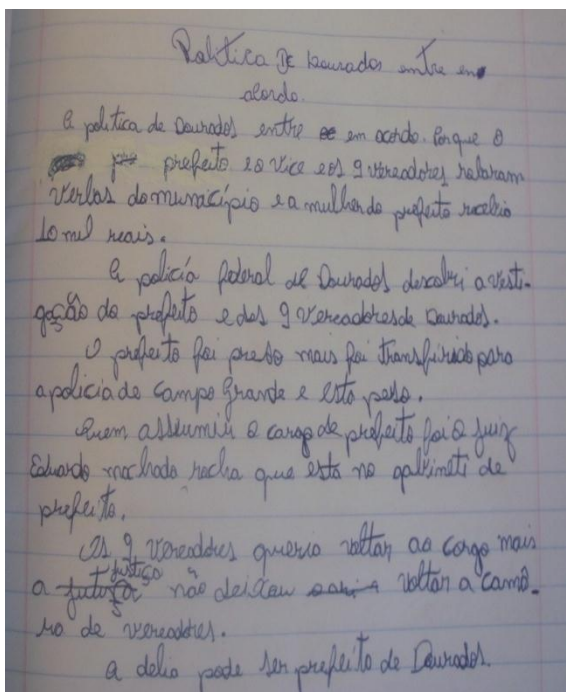 Politica De Dourados entre em
acordo.
A politica de Dourados entre em acordo. Porque o
prefeito e o vice e os 9 vereadores robaram
verbas do município e a mulher do prefeito recebio
10 mil reais.
A policía federal de Dourados descobri a vesti-
gação do prefeito e dos 9 vereadores de Dourados.
O prefeito foi preso mais foi transferido para
a policia de Campo Grande e esta peso.
Quem assiumiu o cargo de prefeito foi o juiz
Eduardo machado rocha que esta no gabineti de
prefeito.
Os 9 vereadores querio voltar ao cargo mais
a justiço não deixou voltar a camâ-
ra de vereadores.
a delia pode ser prefeito de Dourados.